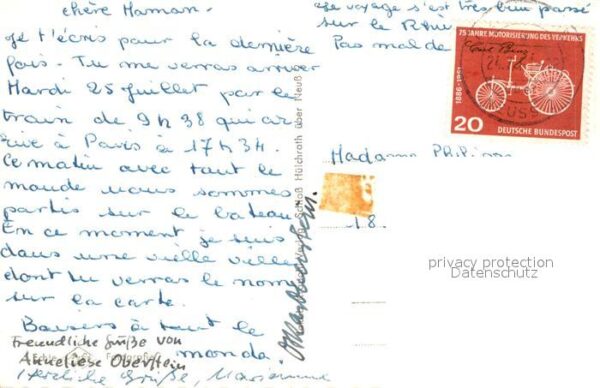 chère Maman.
je t'écris pour la dernière
fois. Tu me verras arriver
Mardi 25 juillet par le
train de 9h38 qui ar
rive à Paris à 17h34.
Ce matin avec tout le
monde nous sommes
partis sur le bateau
En ce moment je suis
dans une vielle ville
dont tu verras le nom
sur la carte.
Baisers à tout le
monde.
Freundliche Grüße von
Anneliese Oberstein
Herzliche Grüße, Marianne
voyage s'est très bien passé
sur le Rhin
Pas mal de
Schloß Hülchrath über Neuß
75 JAHRE MOTORISIERUNG DES VERKEHRS
Carl Benz
1886-1961
20
DEUTSCHE BUNDESPOST
Madame
18
privacy protection
Datenschutz